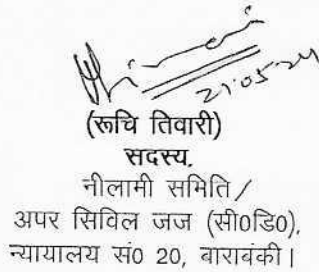 21.05.24
(रूचि तिवारी)
सदस्य,
नीलामी समिति/
अपर सिविल जज (सी0डि0),
न्यायालय सं0 20, बाराबंकी।